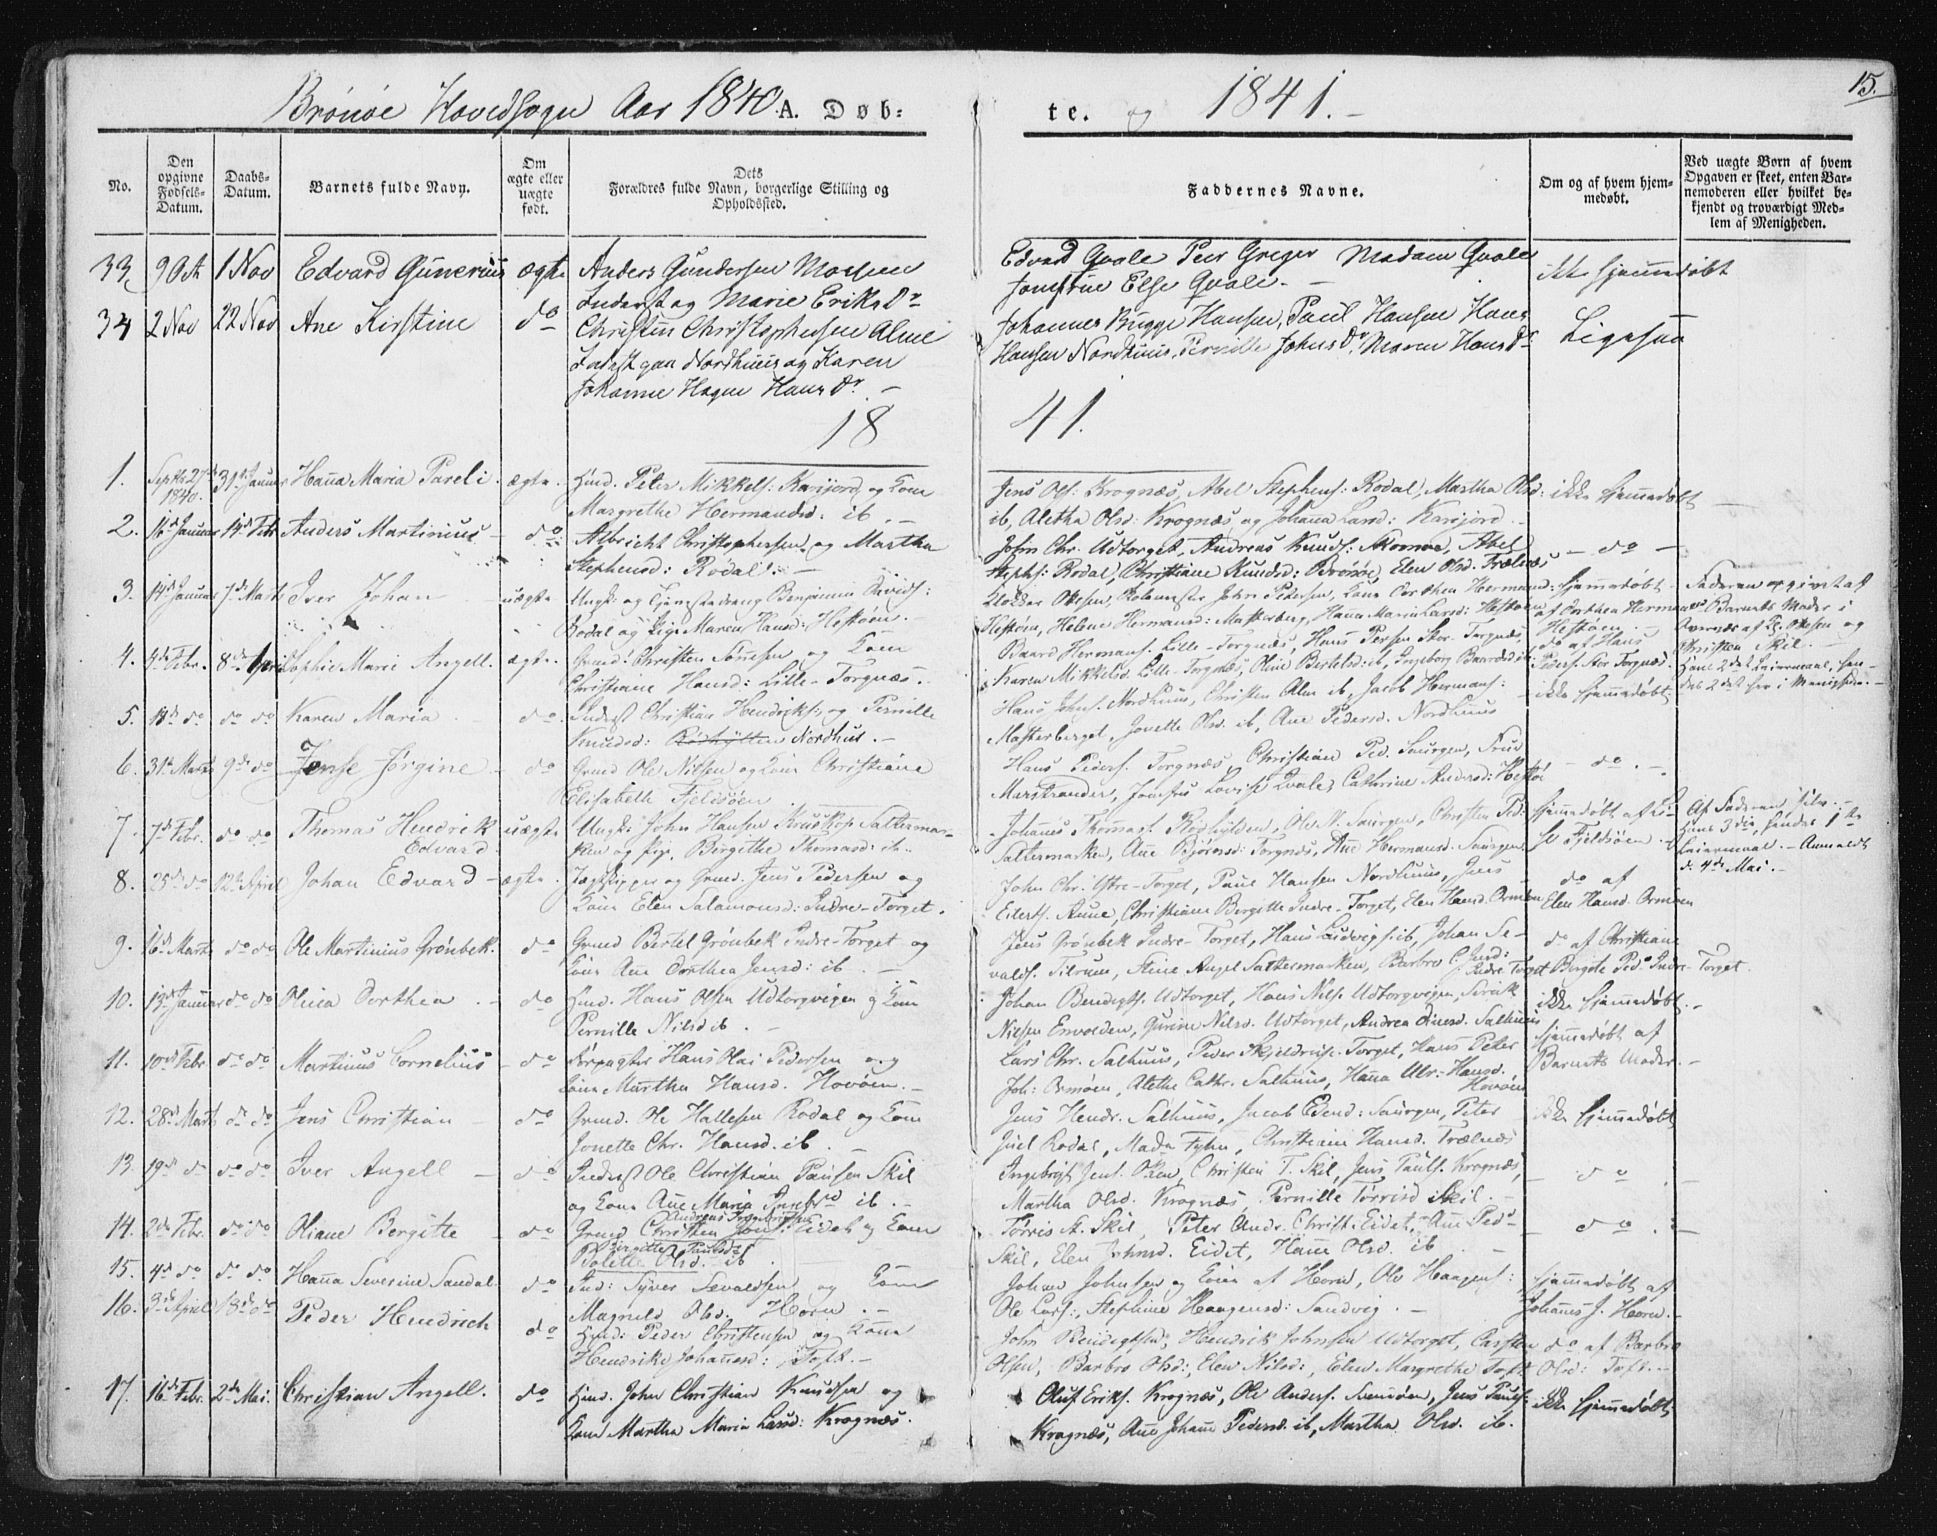 Brönöe Hovedsogn Aar 1840 A. Døb-
te. og 1841.
15.
No.
Den opgivne Fødsels-Datum.
Daabs-Datum.
Barnets fulde Navn.
Om ægte eller uægte født.
Dets Forældres fulde Navn, borgerlige Stilling og Opholdssted.
Faddernes Navne.
Om og af hvem hjemmedøbt.
Ved uægte Born af hvem Opgaven er skeet, enten Barnemoderen eller hvilket bekjendt og troværdigt Medlem af Menigheden.
33 9 Oct 1 Nov Edvard Gunerius ægte Anders Gundersen Moesen
Inderst og Marie Eriks Dr
Edvard Qvale Peer Greger Madam Qvale
Jomfrue Else Qvale.
ikke hjemmedøbt
34 2 Nov 22 Nov Ane Kirstine do Christen Christophersen Alme
Inderst paa Nordhuus og Karen
Johanne Hagen Hans Dr
Johannes Bugge Hansen, Paul Hansen Hans
Hansen Nordhuus, Pernille Johns Dr, Maren Hans Dr
Ligesaa
18 41.
1. Septbr 27de 1840. 31te Januar Hanna Maria Pareli ægte. Huusd. Peter Mikkels: Karijord og Kone
Margrethe Hermansd. ib.
Jens Ols: Krognæs, Abel Stephens: Rodal, Martha Olsd:
ib, Aletha Olsd: Krognæs, og Johana Larsd: Karijord
ikke hjemmedøbt
2. 16de Januar 14de Febr Anders Martinius do: Albricht Christophersen og Martha
Stephensd: Rodal.
John Chr. Udtorget, Andreas Knuds: Skomoe, Abel
Stephs: Rodal, Christiane Knudsd: Brönöe, Elen Olsd. Trælnæs
do
3. 14de Januar 7de Marts Iver Johan uægte Ungk: og Tjenestedreng Benjamin Davids:
Rodal og Pige Maren Hansd: Hestöen.
Klokker Olsen, Skolemester John Pedersen, Lena Dorthea Hermansd:
Hestöen, Helene Hermansd: Masterberg, Hanna Maria Larsd: Hestöen
hjemmedøbt af Dorthea Hermans Hestöen
Faderen opgivet af Barnets Moder i Overvær af Kl. Olsen og Christen Skil.
Hans 2det Leiermaal, hendes 2det her i Menigheden.
4. 4de Febr. 8de April Sophie Marie Angell. ægte Grmd: Christen Tönnesen og Kone
Christiane Hansd: Lille-Torgnæs.
Baard Hermans: Lille-Torgnæs, Hans Persen Stor Torgnæs,
Karen Mikkelsd. Lille-Torgnæs, Oline Bertelsd: ib, Ingeborg Baardsd ib
do af Hans Peders: Stor Torgnæs.
5. 18de do do do Karen Maria do. Inderst Christian Hendriks: og Pernille
Knudsd: Rödhytten Nordhus.
Hans Johns. Nordhuus, Christen Alm ib, Jacob Hermans:
Masterberget, Jonette Olsd. ib, Ane Pedersd. Nordhuus
ikke hjemmedøbt
6. 31te Marts 9de do Jense Jörgine do Grmd Ole Nilsen og Kone Christiane
Elisabeth Fjeldsöen
Hans Peders. Torgnæs, Christian Ped. Saurgen, Frue
Marstrander, Jomfru Lovise Qvale, Cathrine Andersd: Hestöe
do.
7. 7de Febr. do do Thomas Hendrik
Edvard uægte Ungk: John Hansen Kruskop Saltermar-
ken og Pige Birgithe Thomasd: ib.
Johannes Thomass. Rödhylden, Ole N. Saurgen, Christen Ped:
Saltermarken, Ane Björnsd: Torgnæs, Ane Hermansd. Saurgen
hjemmedøbt af Li-
Fjeldsöen
Af Faderen selv.
Hans 3die, hendes 1te
Leiermaal. Anmeldt
d. 4de Mai.
8. 25de do 12te April Johan Edvard ægte. Jægtskipper og Grmd. Jens Pedersen og
Kone Elen Salamonsd: Indre-Torget.
John Chr. Ytre-Torget, Paul Hansen Nordhuus, Jens
Eilerts. Aune, Christiane Birgitte Indre-Torget, Elen Hansd. Ormöen
do af
Elen Hansd. Ormöen
9. 16de Marts do do Ole Martinius Grönbek. do Grmd Bertel Grönbek Indre-Torget og
Kone Ane Dorthea Jensd: ib.
Jens Grönbek Indre-Torget, Hans Ludvigs: ib, Johan Se-
valds. Tilrum, Stine Angel Saltermarken, Barbro C. Jensd: Indre Torget
do af Christiane
Birgitte Pedsd Indre-Torget.
10. 13de Januar do do Olina Dorthea do Huusd. Hans Olsen Udtorgvigen og Kone
Pernille Nilsd ib
Johan Bendigts. Udtorget, Hans Nils. Udtorgvigen, Sivik
Nilsen Envolden, Gurine Nilsd. Udtorget, Andrea Einesd. Salhuus
ikke hjemmedøbt.
11. 10de Febr do do Martinus Cornelius do Forpagter Hans Olai Pedersen og
Kone Martha Hansd. Hovöen.
Lars Chr. Salhuus, Peder Skjeldrus. Torget, Hans Peter
Joh: Ormöen, Alethe Cathr. Salhuus, Hanna Ulr: Hansd. Hovöen
hjemmedøbt af
Barnets Moder.
12. 28de Marts do do Jens Christian do Grmd. Ole Hallesen Rodal og Kone
Jonette Chr. Hansd. ib.
Jens Hendr. Salhuus, Jacob Edend: Saurgen, Peter
Juel Rodal, Mada Fyhn, Christiane Hansd. Trælnæs
ikke hjemmedøbt
13. 19de do do do Iver Angell do Inderst Ole Christian Paulsen Skil
og Kone Ane Maria ib.
Ingebrigt Jens. Christen T. Skil, Jens Pauls. Krognæs,
Martha Olsd. Krognæs, Pernille Törrisd Skil.
do
14. 2de Febr. do do Oliane Bergitte do Grmd Christen Jons: Eidet og Kone
Andreas Ingebrigtsen
Bolette Olsd. ib
Birgitte Paulsd:
Törris A. Skil, Peter Andr. Christ: Eidet, Ane Peds
Skil, Elen Johnsd. Eidet, Hanne Olsd. ib
do
15. 4de do do do Hanna Severine Sandal do Ind: Syver Sevaldsen og Kone
Magnild Olsd. Horn.
Johan Johnsen og Kone af Horn, Ole Haagens:
Ole Lars:, Stephine Haagensd: Sandvig.
hjemmedøbt af
Johannes J. Horn.
16. 3de April 18de do Peder Hendrich do Huusd: Peder Christensen og Kone
Hendrike Johannesd: Toft.
John Bendigtsen, Hendrik Johnsen Udtorget, Carsten
Olsen, Barbro Olsd:, Elen Nilsd:, Elen Margrethe Toft
do af Barbro
Olsd: Toft.
17. 16de Febr. 2de Mai. Christian Angell. do Huusd. John Christian Knudsen og
Kone Martha Maria Larsd: Krognæs.
Oluf Eriks. Krognæs, Ole Anders. Svensöen, Jens Pauls:
Krognæs, Ane Johane Pedersd. ib, Martha Olsd. ib.
ikke hjemmedøbt